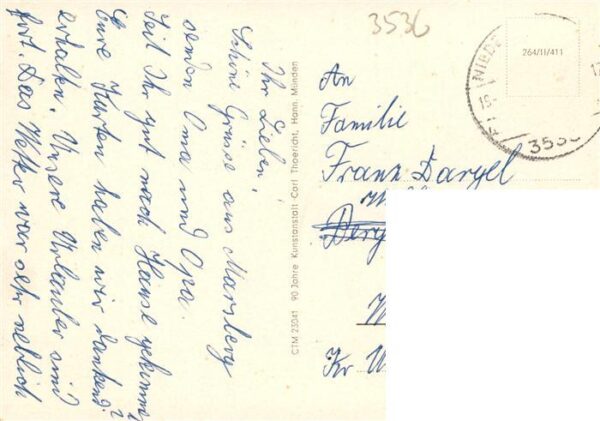 3536
Ihr Lieben!
Schöne Grüsse aus Marsberg
senden Oma und Opa.
Seid Ihr gut nach Hause gekommen?
Eure Karten haben wir dankend
erhalten. Unsere Urlauber sind
fort. Das Wetter war sehr neblich
CTM 23041 90 Jahre Kunstanstalt Carl Thoericht, Hann. Münden
264/II/411
3536
An
Familie
Franz Dargel
Berg
Kr